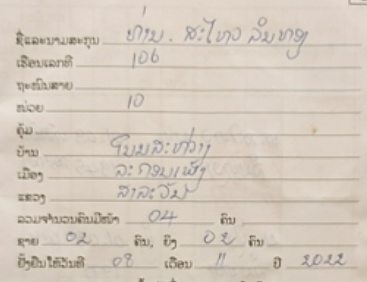 ຊື່ແລະນາມສະກຸນ ທ່ານ. ສະໄຫວ ລິນທອງ
ເຮືອນເລກທີ 106
ຖະໜົນສາຍ
ໜ່ວຍ 10
ຄຸ້ມ
ບ້ານ ໂນນສະຫວ່າງ
ເມືອງ ລະຄອນເພັງ
ແຂວງ ສາລະວັນ
ລວມຈຳນວນຄົນມີໜ້າ 04 ຄົນ
ຊາຍ 02 ຄົນ, ຍິງ 02 ຄົນ
ຢັ້ງຢືນໃຫ້ວັນທີ 08 ເດືອນ 11 ປີ 2022